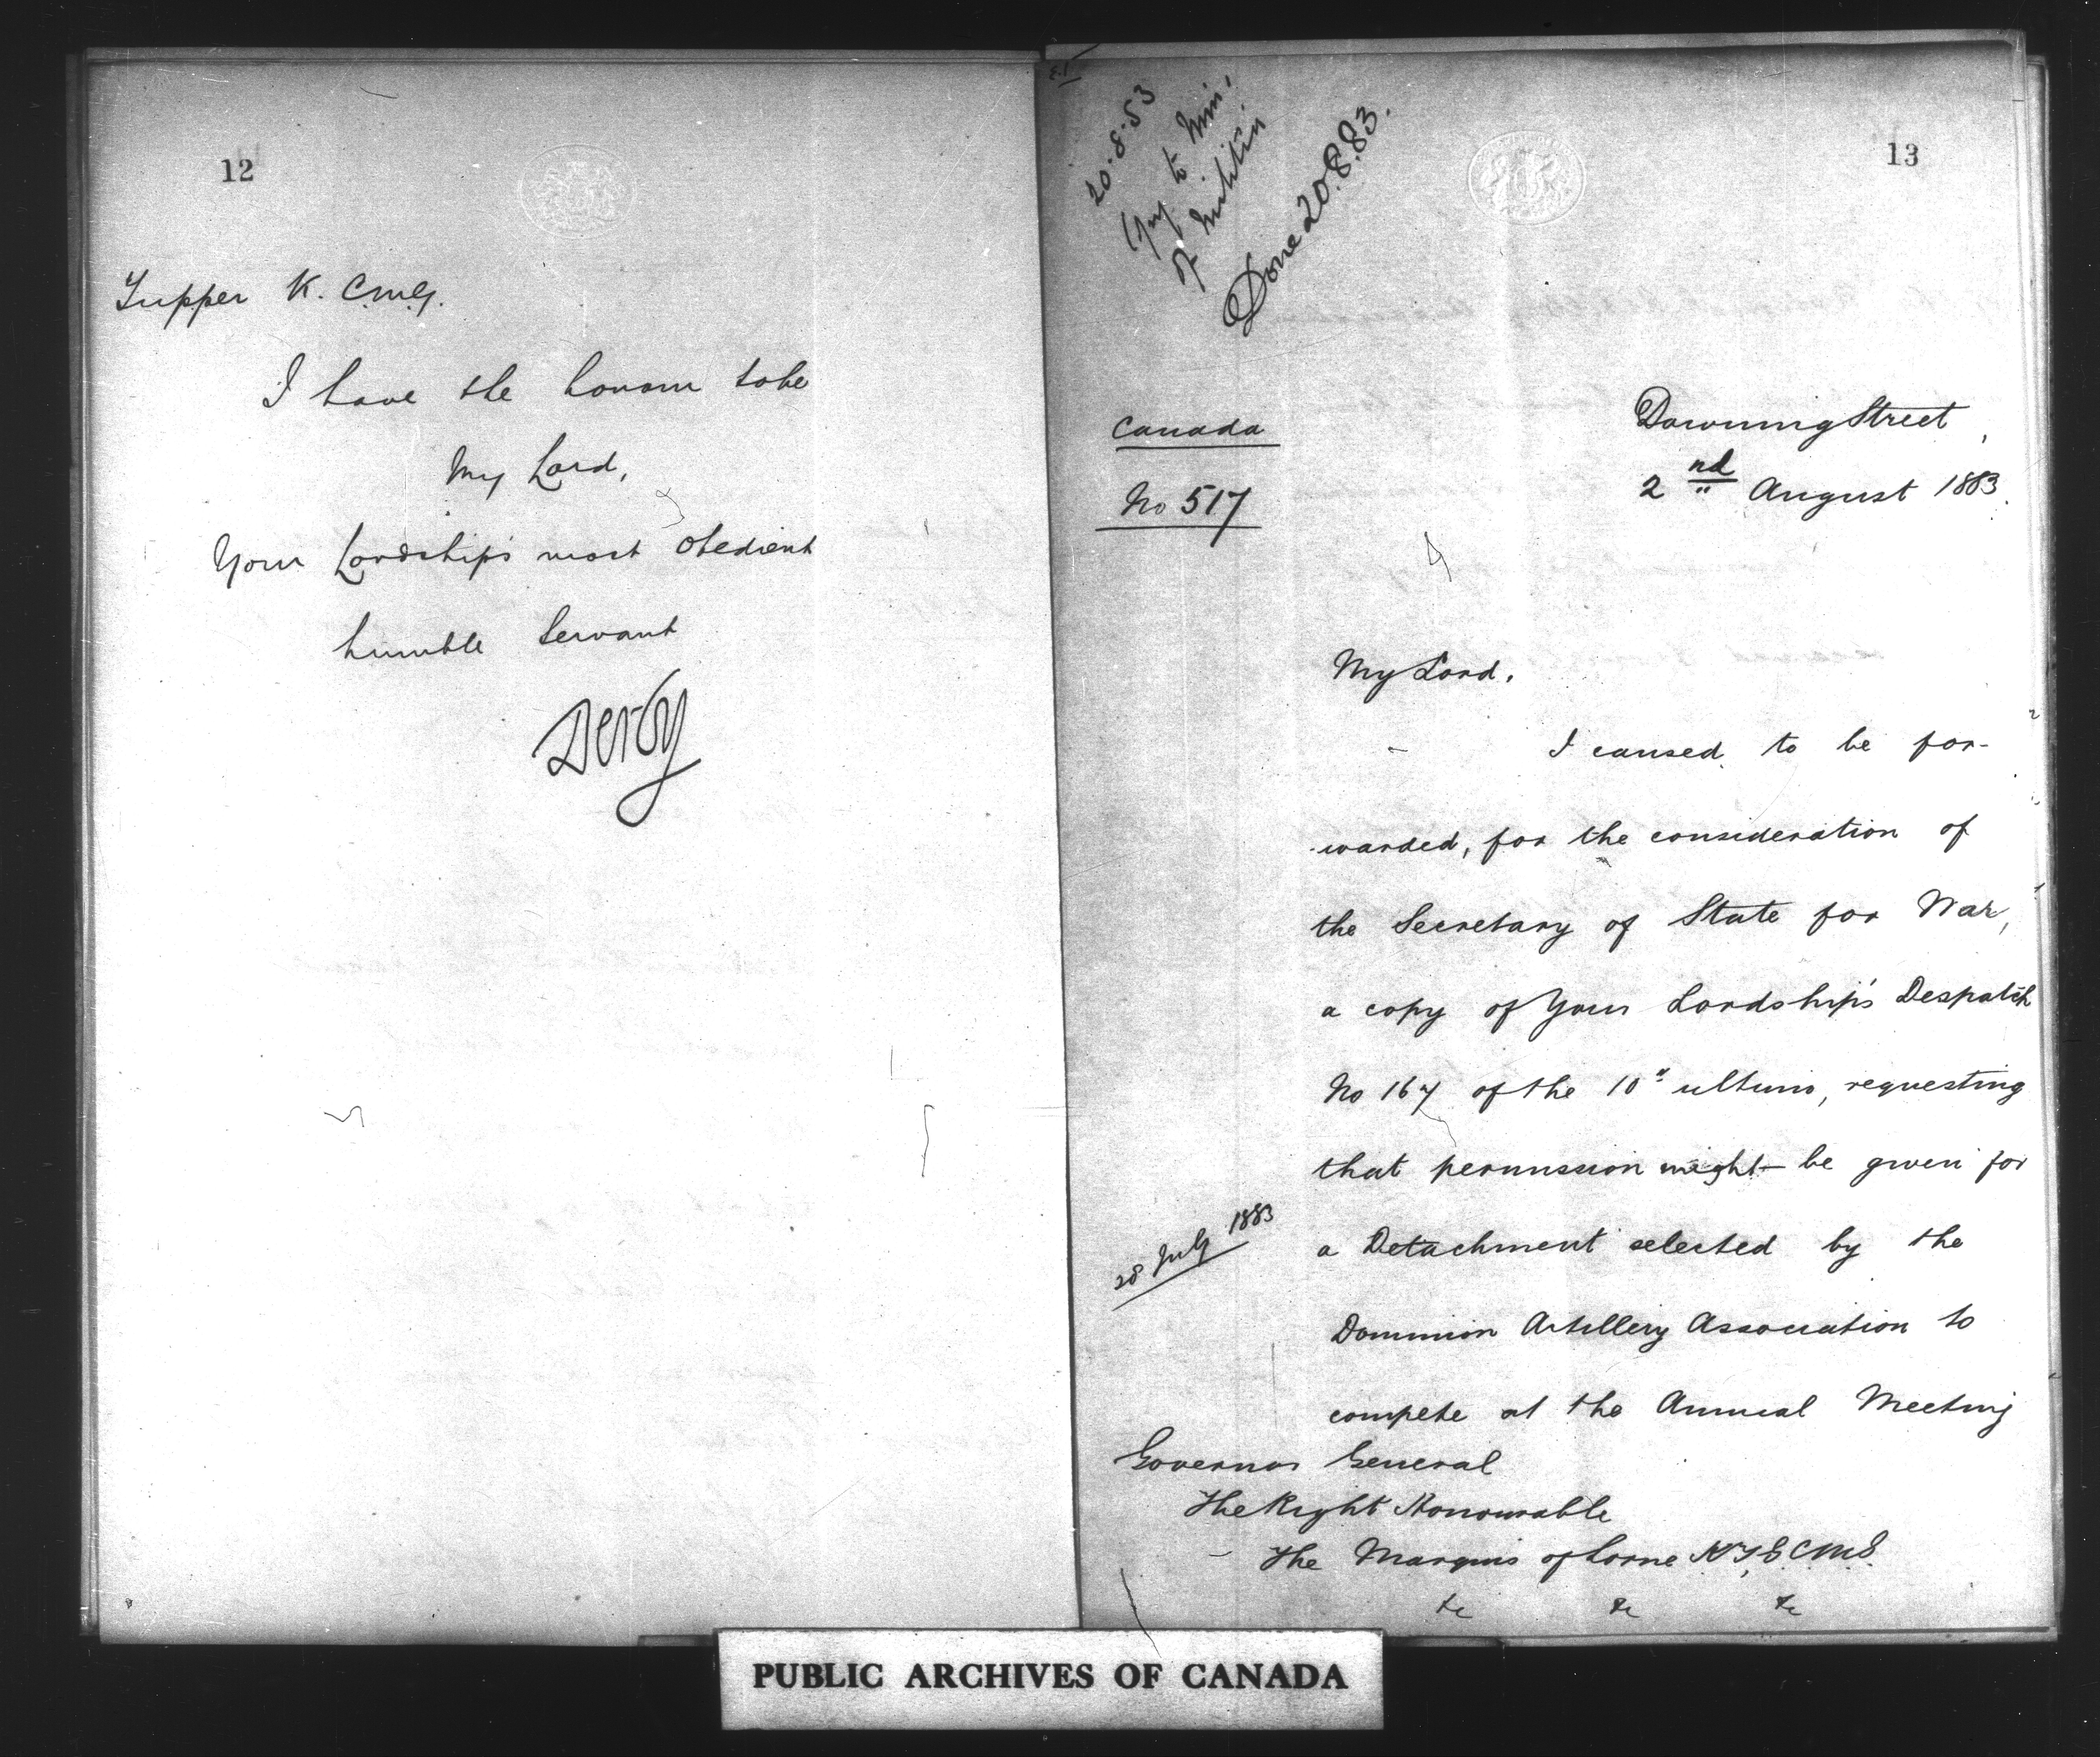 12
Tupper K.C.M.G.
I have the honour to be
My Lord,
Your Lordship's most obedient
humble Servant
Derby
13
20.8.83
Copy to Min.
of Militia
Done 20.8.83.
Canada
No 517
Downing Street,
2nd August 1883.
My Lord,
I caused to be for-
-warded, for the consideration of
the Secretary of State for War,
a copy of Your Lordship's Despatch
No 167 of the 10" ultimo, requesting
that permission might be given for
28 July 1883
a Detachment selected by the
Dominion Artillery Association to
compete at the Annual Meeting
Governor General
The Right Honourable
The Marquis of Lorne K.T., G.C.M.G.
&c &c &c
PUBLIC ARCHIVES OF CANADA